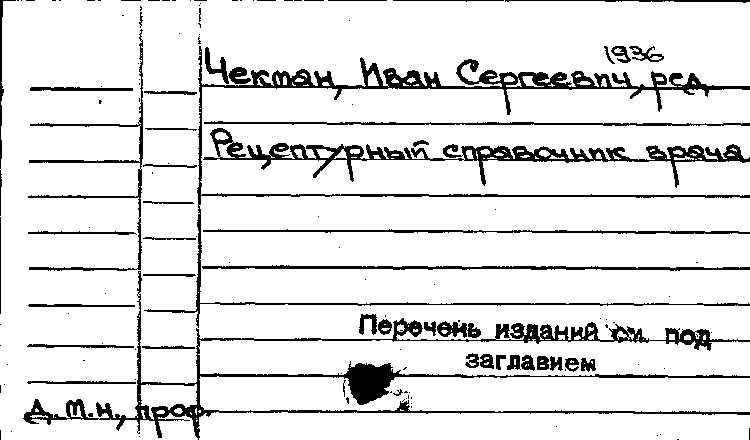 1936
Чекман, Иван Сергеевич, ред.
Рецептурный справочник врача
Перечень изданий см. под
заглавием
д.м.н., проф.